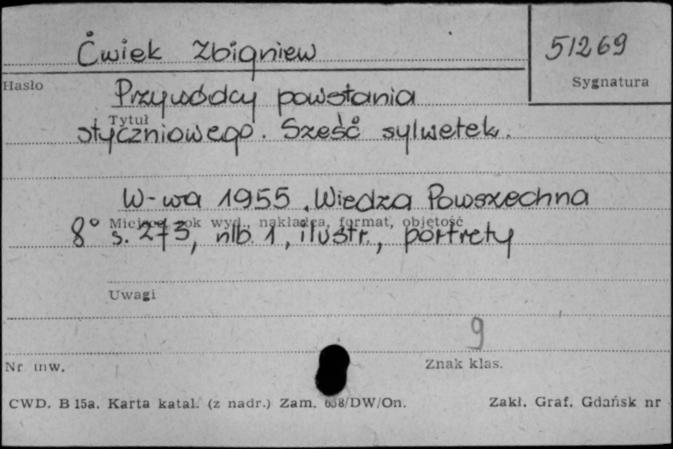 Ćwiek Zbigniew
51269
Hasło
Sygnatura
Przywódcy powstania
Tytuł
styczniowego. Sześć sylwetek.
W-wa 1955, Wiedza Powszechna
Miejsce, rok wyd., nakładca, format, objętość
8° s. 273, nlb. 1, ilustr., portrety
Uwagi
9
Nr inw.
Znak klas.
CWD. B 15a. Karta katal. (z nadr.) Zam. 638/DW/On.
Zakł. Graf. Gdańsk nr